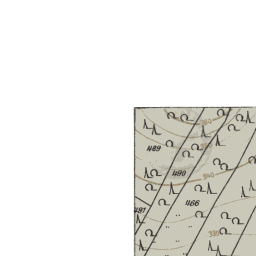 489
490
340
466
491
330